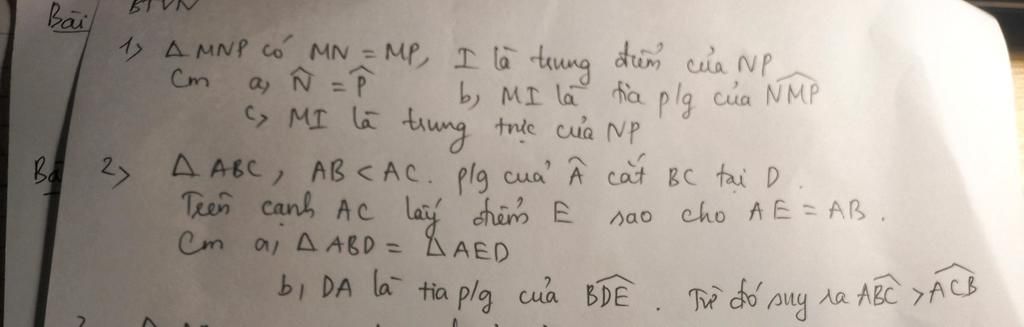 Bài BTVN
1, Δ MNP có MN = MP, I là trung điểm của NP
Cm a, N̂ = P̂ b, MI là tia p/g của \widehat{NMP}
c, MI là trung trực của NP
Bà 2, Δ ABC, AB < AC. p/g của Â cắt BC tại D.
Trên cạnh AC lấy điểm E sao cho AE = AB.
Cm a, Δ ABD = Δ AED
b, DA là tia p/g của \widehat{BDE}. Từ đó suy ra \widehat{ABC} > \widehat{ACB}